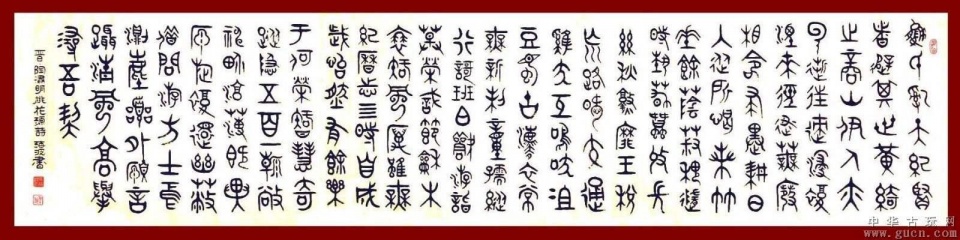 嬴氏亂天紀賢
者避其世黃綺
之商山伊人亦
云逝往跡浸復
湮來徑遂蕪廢
相命肆農耕日
入從所憩桑竹
垂餘蔭菽稷隨
時藝春蠶收長
絲秋熟靡王稅
荒路曖交通
雞犬互鳴吠俎
豆猶古法衣裳
無新製童孺縱
行歌班白歡游詣
草榮識節和木
衰知風厲雖無
紀曆志四時自成
歲怡然有餘樂
于何勞智慧奇
蹤隱五百一朝敞
神界淳薄既異
源旋復還幽蔽
借問游方士焉
測塵囂外願言
躡清風高舉
尋吾契
晉陶淵明桃花源詩書
中华古玩网
www.gucn.com